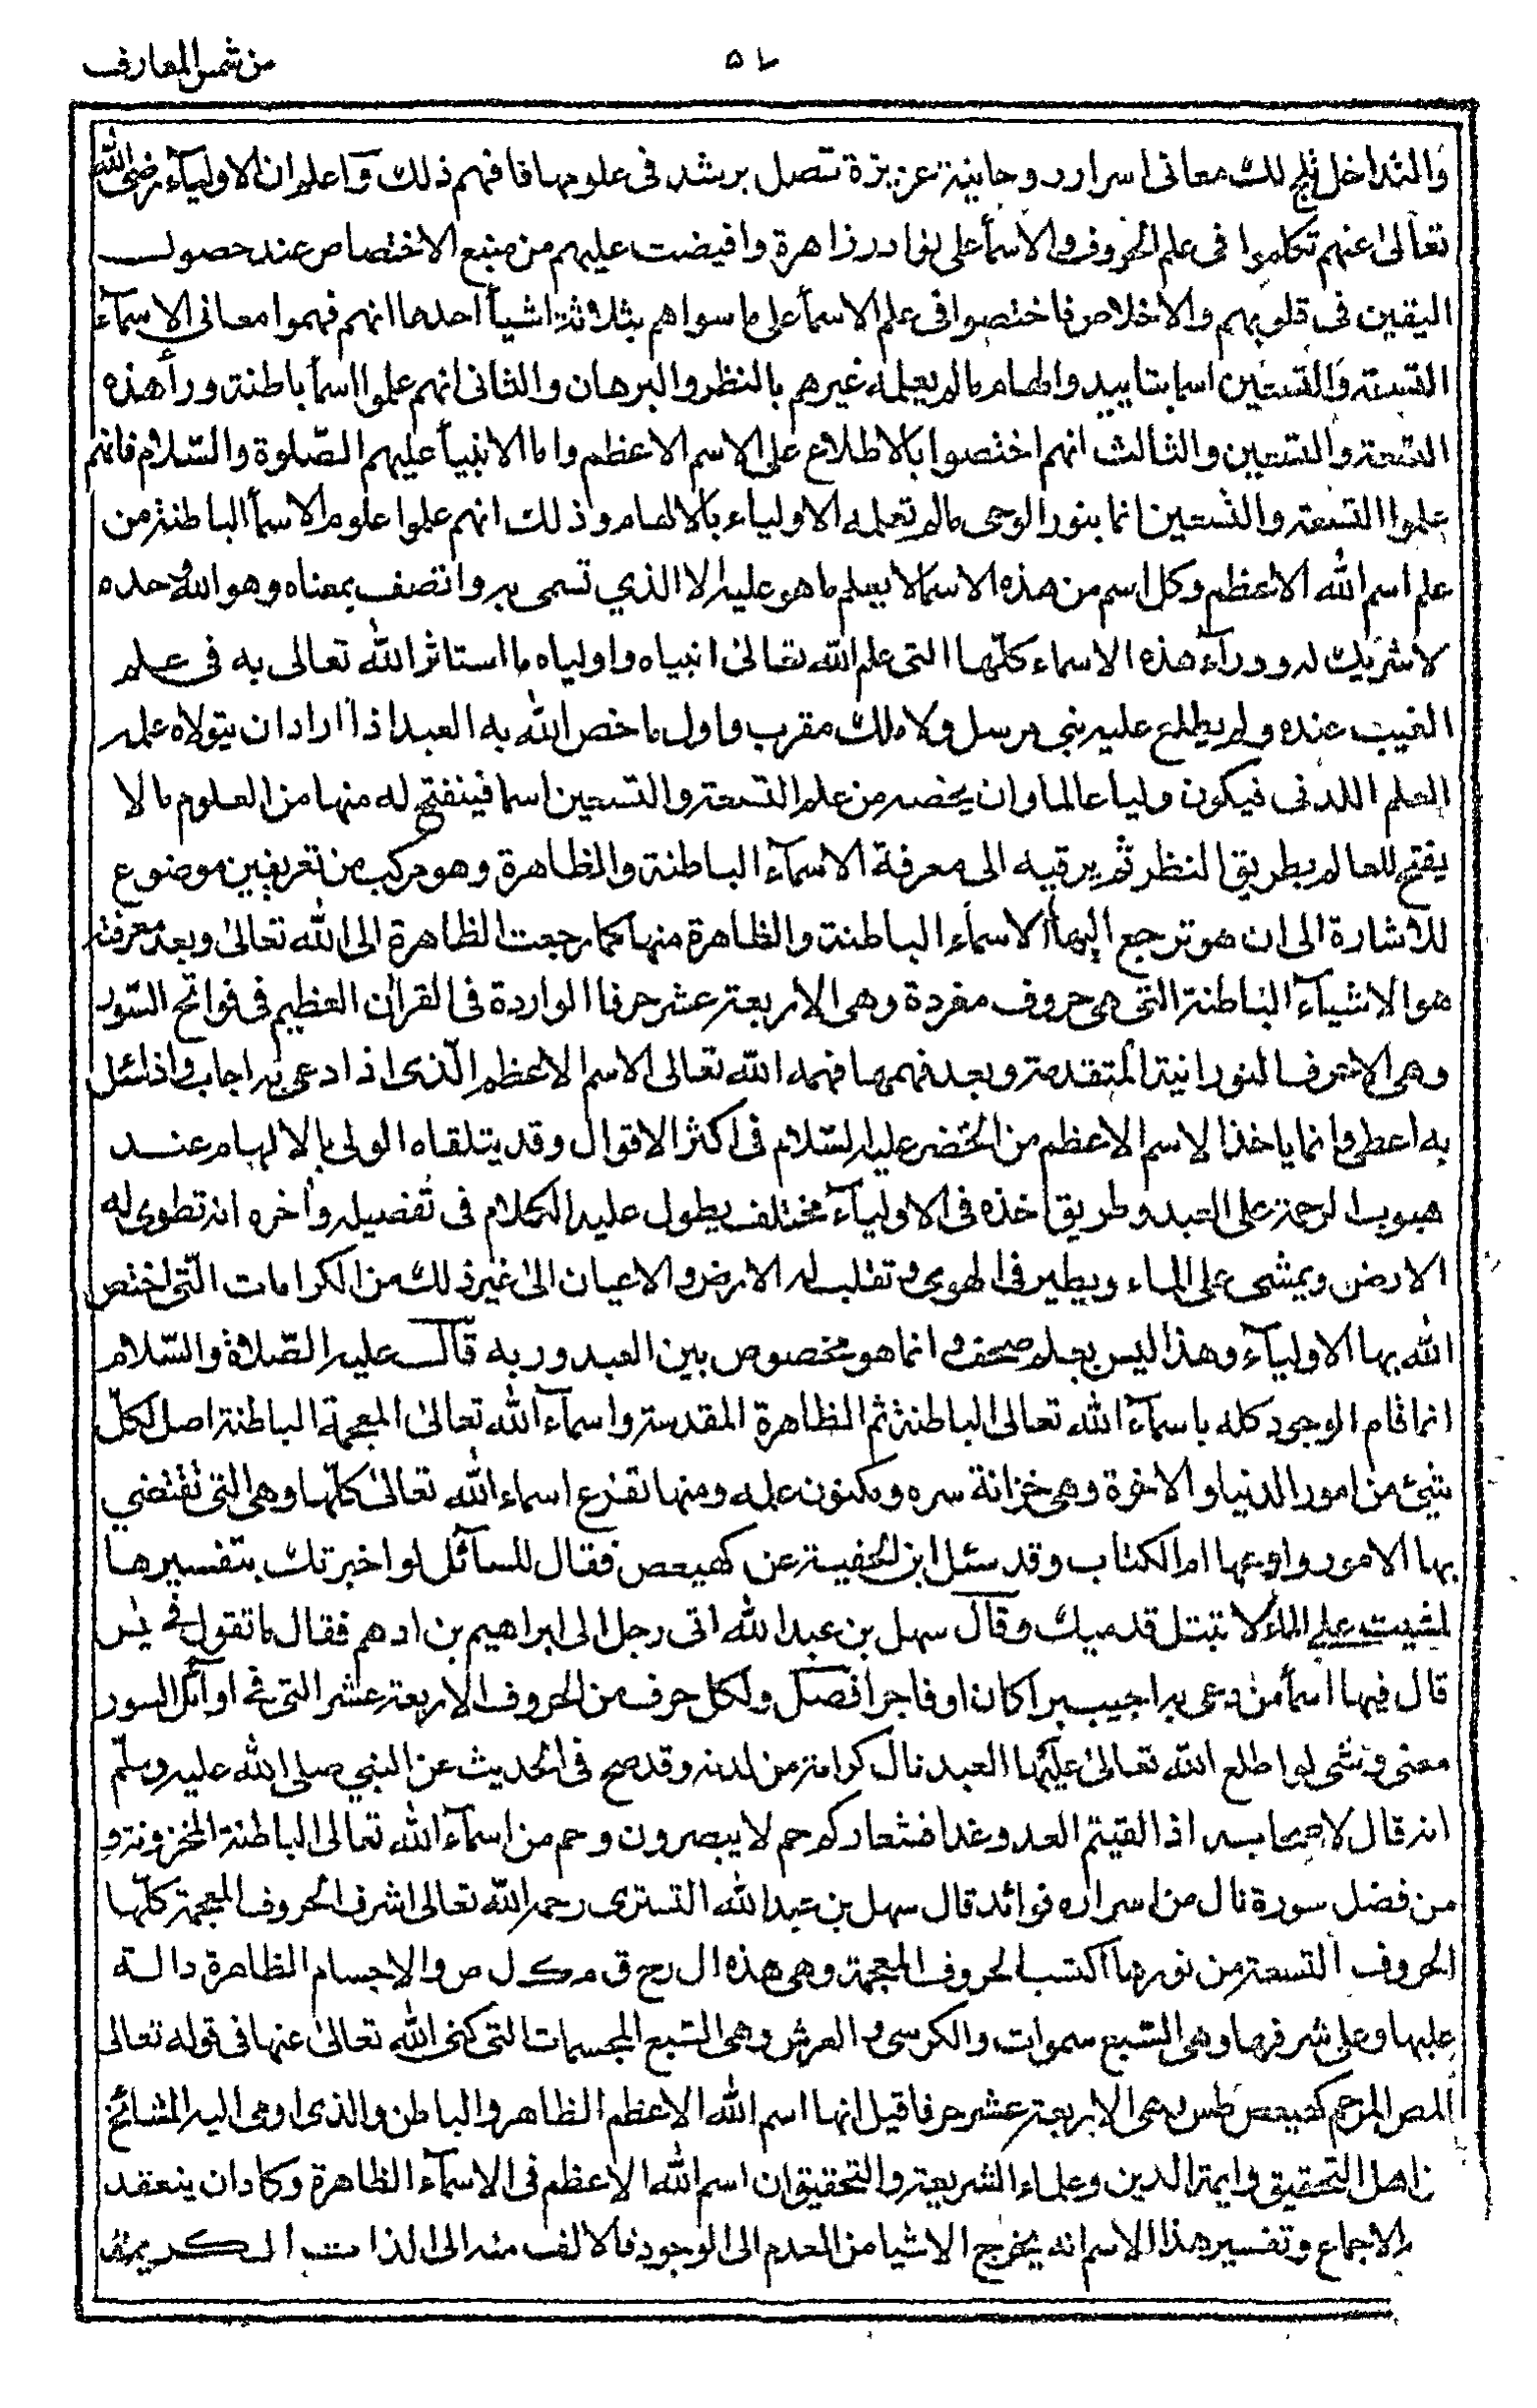 من شمس المعارف
٥٢
والتداخل ثلج لك معانى اسرار روحانية عزيزة تتصل برشد فى علومها فافهم ذلك واعلم ان الاولياء رضى الله
تعالى عنهم تكلموا فى علم الحروف والاسمأ على نوادر زاهرة وافيضت عليهم من منبع الاختصاص عند حصول
اليقين فى قلوبهم والاخلاص فاختصوا فى علم الاسمأ على ما سواهم بثلاثة اشيأ احدها انهم فهموا معانى الاسمآء
التسعة والتسعين اسما بتاييد والهام ما لم يعلمه غيرهم بالنظر والبرهان والثانى انهم علموا اسمأ باطنة ورأ هذه
التسعة والتسعين والثالث انهم اختصوا بالاطلاع على الاسم الاعظم واما الانبيأ عليهم الصّلوة والسّلام فانهم
علموا التسعة والتسعين انما بنور الوحى ما لم تعلمه الاولياء بالالهام وذلك انهم علموا علوم الاسمأ الباطنة من
علم اسم الله الاعظم وكل اسم من هذه الاسما لا يعلم ما هو عليه الا الذي تسمى به واتصف بمعناه وهو الله وحده
لا شريك له وورآء هذه الاسماء كلّها التى علم الله تعالى انبياه واولياه ما استاثر الله تعالى به فى علم
الغيب عنده ولم يطلع عليه نبى مرسل ولا ملك مقرب واول ما خص الله به العبد اذا اراد ان يتولاه علمه
العلم اللدنى فيكون وليا عالما وان يخصه من علم التسعة والتسعين اسما فينفتح له منها من العلوم ما لا
يفتح للعالم بطريق النظر ثم يرقيه الى معرفة الاسمآء الباطنة والظاهرة وهو مركب من تعريفين موضوع
للاشارة الى ان هو ترجع اليها الاسماء الباطنة والظاهرة منها كما رجعت الظاهرة الى الله تعالى وبعد معرفة
هو الاشيآء الباطنة التى هى حروف مفردة وهى الاربعة عشر حرفا الواردة فى القران العظيم فى فواتح السّور
وهى الاحرف النورانية المتقدمة وبعد فهمها فهمه الله تعالى الاسم الاعظم الّذى اذا دعى به اجاب واذا سئل
به اعطى وانما ياخذ الاسم الاعظم من الخضر عليه السّلام فى اكثر الاقوال وقد يتلقاه الولى بالالهام عند
هبوب الرحمة على العبد وطريق اخذه فى الاوليآء مختلف يطول عليه الكلام فى تفصيله واخره انه تطوى له
الارض ويمشى على الماء ويطير فى الهوى وتقلب له الارض والاعيان الى غير ذلك من الكرامات الّتى اختص
الله بها الاوليآء وهذا ليس بجلم صحف وانما هو مخصوص بين العبد وربه قال عليه الصّلاة والسّلام
انما قام الوجود كله باسمآء الله تعالى الباطنة ثم الظاهرة المقدسة واسمآء الله تعالى المعجمة الباطنة اصل لكلّ
شئ من امور الدنيا والاخرة وهى خزانة سره ومكنون علمه ومنها تفرع اسماء الله تعالى كلّها وهى التى تقتضي
بها الامور واودعها ام الكتاب وقد سئل ابن الحنفية عن كهيعص فقال للسآئل لو اخبرتك بتفسيرها
لمشيت على الماء لا تبتل قدميك وقال سهل بن عبد الله اتى رجل الى ابراهيم بن ادهم فقال ما تقول فى يس
قال فيها اسمأ من دعى به اجيب برا كان او فاجرا فصل ولكل حرف من الحروف الاربعة عشر التى فى اوآئل السور
معنى وشى لو اطلع الله تعالى عليها العبد نال كرامة من لدنه وقد صح فى الحديث عن النبي صلى الله عليه وسلّم
انه قال لاصحابه اذا لقيتم العدو غدا فشعاركم حم لا يبصرون وحم من اسمآء الله تعالى الباطنة المخزونة و
من فضل سورة نال من اسراره فوائد قال سهل بن عبد الله التسترى رحمه الله تعالى اشرف الحروف المعجمة كلّها
الحروف التسعة من نورها اكتسب الحروف المعجمة وهى هذه ال ر ح ق م ك ل ص والاجسام الظاهرة دالة
عليها وعلى شرفها وهى السّبع سموات والكرسى والعرش وهى السّبع المجسمات التى كنى الله تعالى عنها فى قوله تعالى
المص المر حم كهيعص طس وهى الاربعة عشر حرفا قيل انها اسم الله الاعظم الظاهر والباطن والذى اومى اليه المشائخ
اهل التحقيق وايمة الدين وعلماء الشريعة والتحقيق ان اسم الله الاعظم فى الاسمآء الظاهرة وكاد ان ينعقد
الاجماع وتفسير هذا الاسم انه يخرج الاشيا من العدم الى الوجود فالالف منه الى الذات الكريمة